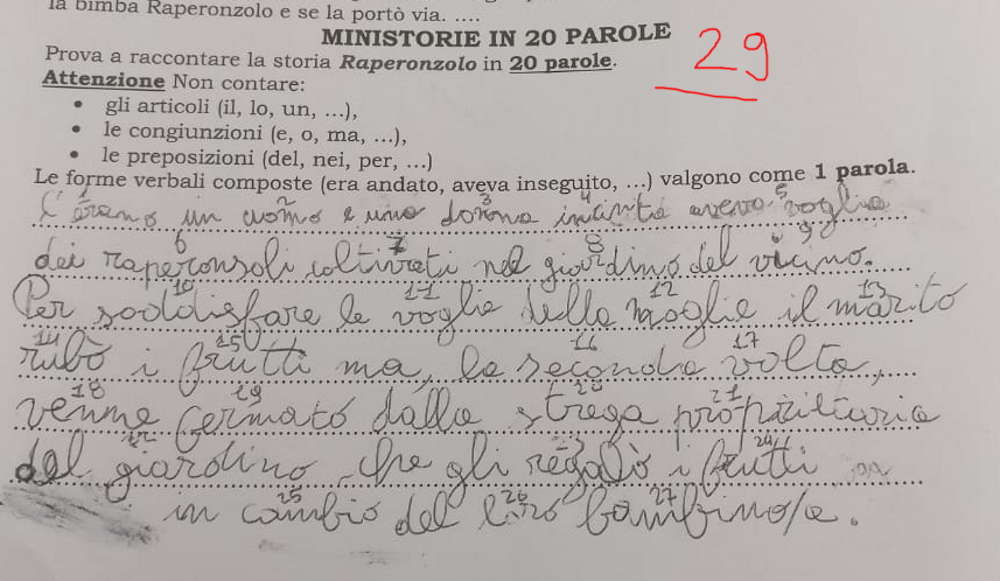 la bimba Raperonzolo e se la portò via. ....
MINISTORIE IN 20 PAROLE
29
Prova a raccontare la storia Raperonzolo in 20 parole.
Attenzione Non contare:
• gli articoli (il, lo, un, ...),
• le congiunzioni (e, o, ma, ...),
• le preposizioni (del, nei, per, ...)
Le forme verbali composte (era andato, aveva inseguito, ...) valgono come 1 parola.
1 2 3 4 5
C'erano un uomo e una donna incinta aveva voglia
6 7 8 9
dei raperonsoli coltivati nel giardino del vicino.
10 11 12 13
Per soddisfare le voglie della moglie il marito
14 15 16 17
rubò i frutti ma, la seconda volta,
18 19 20 21
venne fermato dalla strega proprietaria
23 24
del giardino che gli regalò i frutti
25 26 27
in cambio del loro bambino/a.